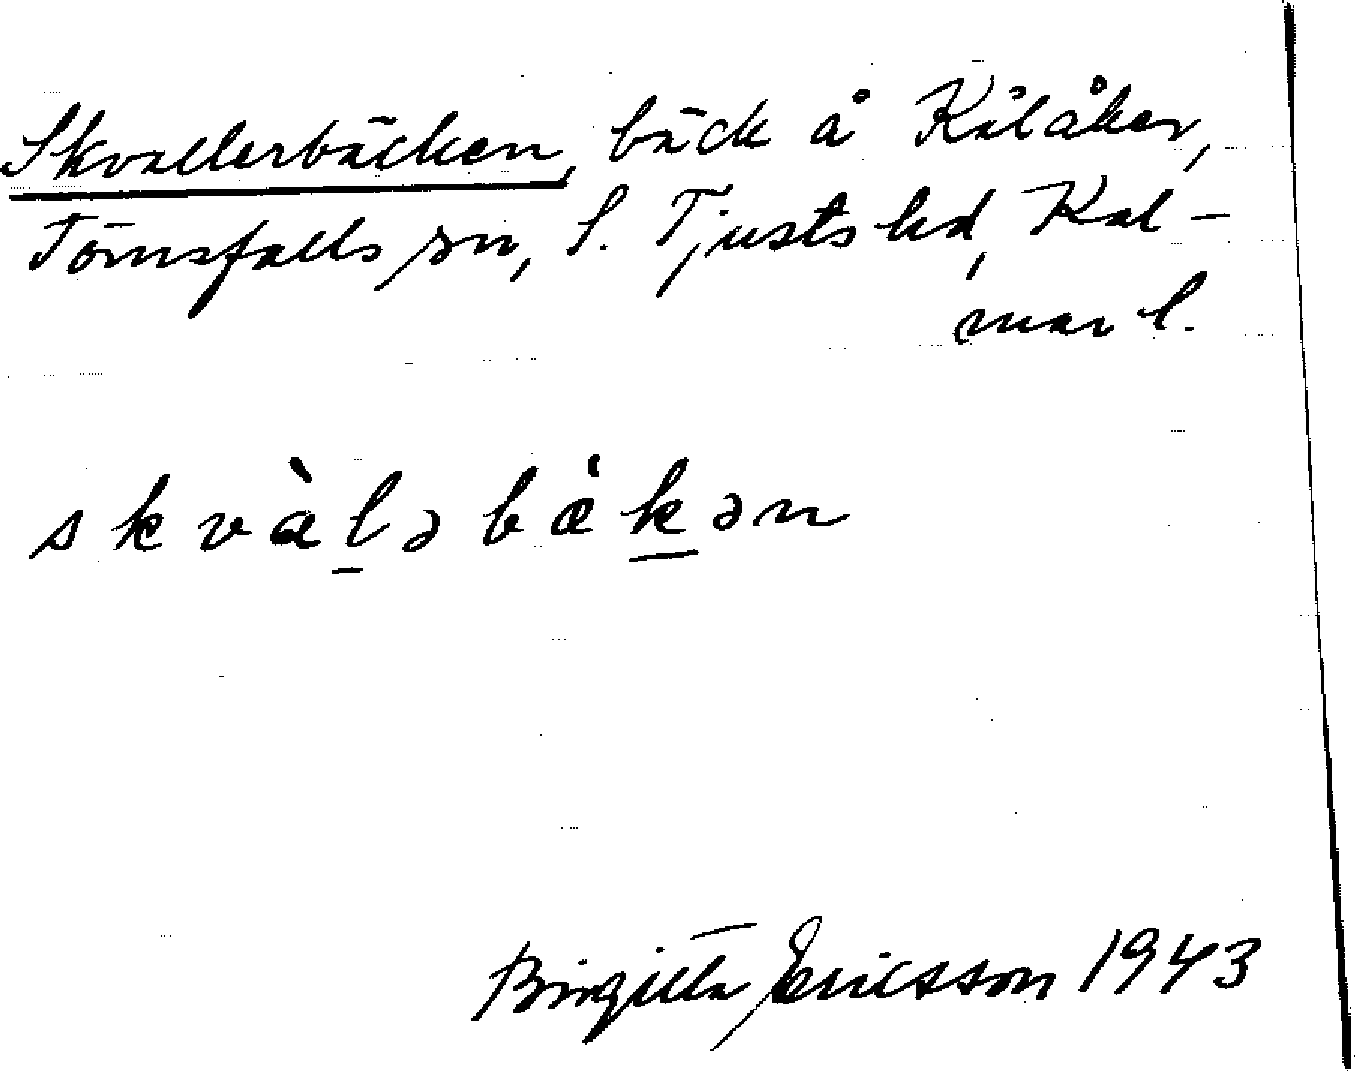 Skvallerbäcken, bäck å Kålåker,
Törnsfalls sn, S. Tjusts hd, Kal-
mar l.
skvàḻəbä̀ḵən
Birgitta Ericsson 1943